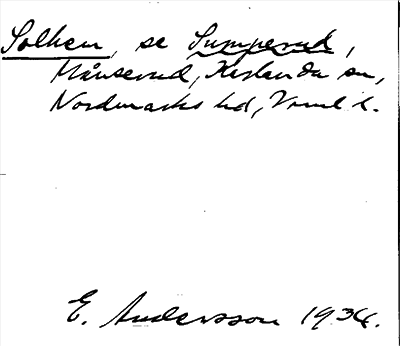 Solhem, se Sumperud,
Månserud, Karlanda sn,
Nordmarks hd, Vrml l.
E. Andersson 1934.